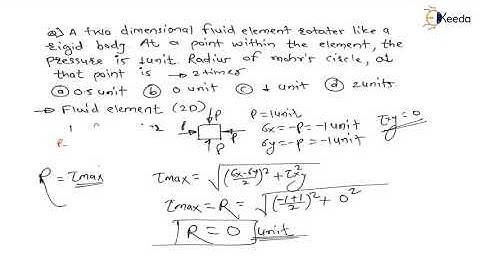 Ekeeda
Q] A two dimensional fluid element rotates like a
rigid body At a point within the element, the
pressure is 1unit. Radius of mohr's circle, at
that point is → 2 times
(a) 0.5 unit (b) 0 unit (c) 1 unit (d) 2units
→ Fluid element (2D)
P
P P
P
P = 1unit
σx = -P = -1 unit
σy = -P = -1unit
τxy = 0
R = τmax
τmax = √(σx-σy/2)² + τ²xy
τmax = R = √(-1+1/2)² + 0²
R = 0 unit